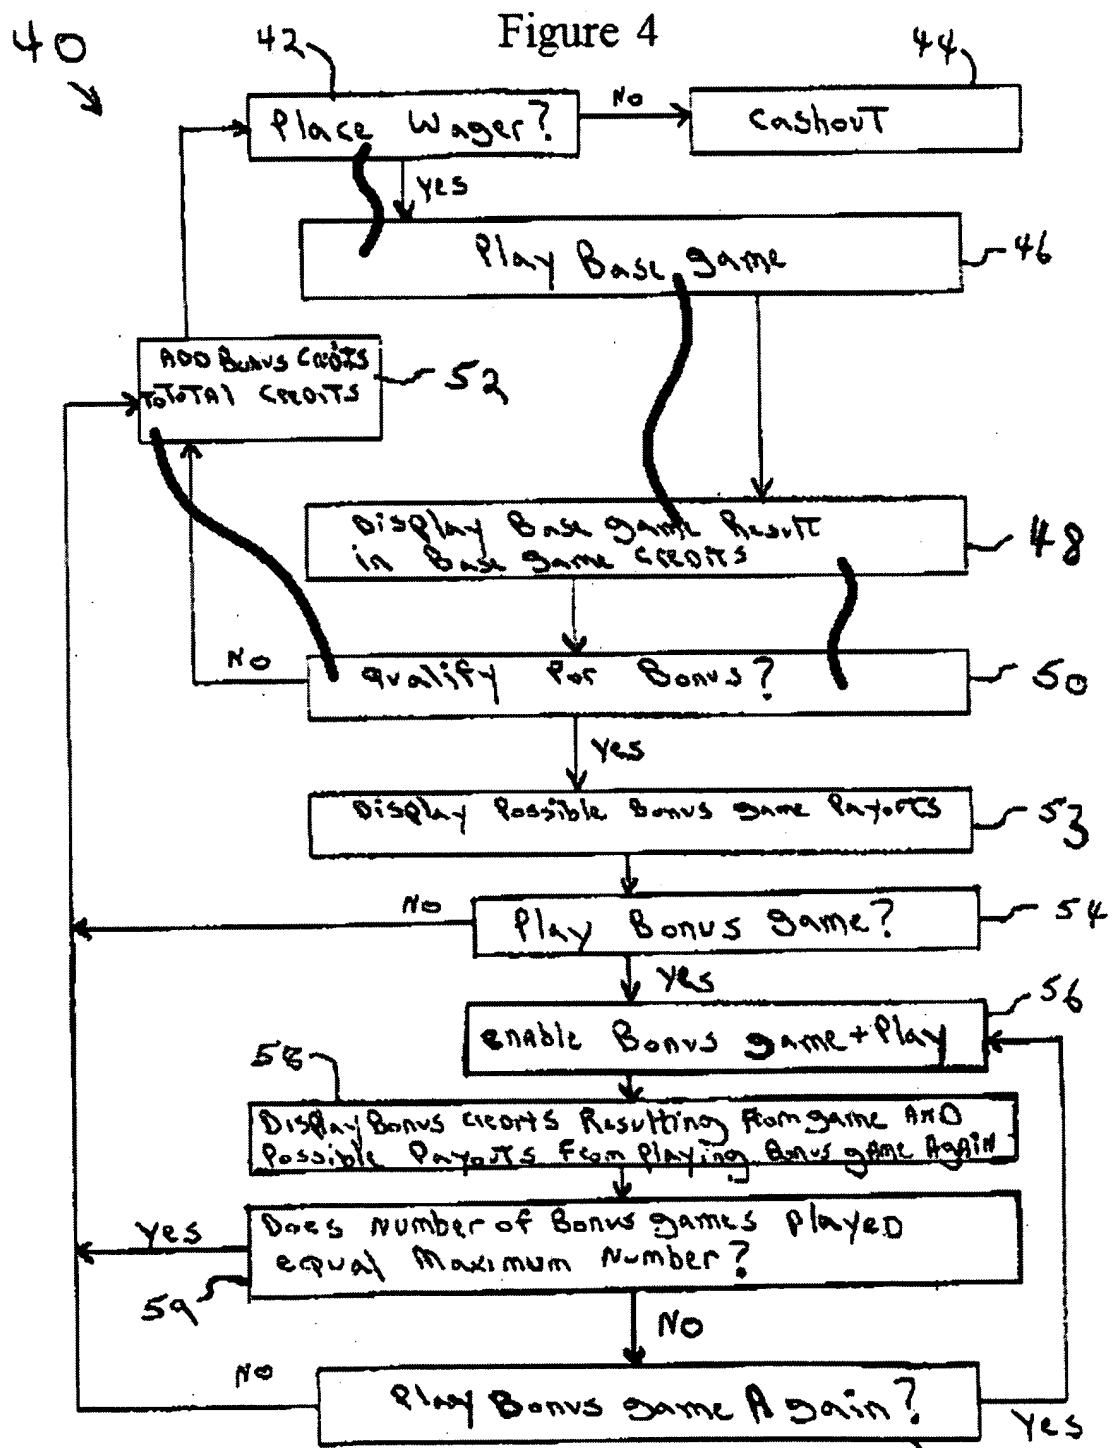 Figure 4
40
42
44
Place Wager?
NO
CashouT
Yes
Play Base game
46
ADD Bonus Credits
To ToTAl CREDITS
52
Display Base game Result
in Base game CREDITS
48
NO
Qualify For Bonus?
50
Yes
Display Possible Bonus game Payouts
53
NO
Play Bonus game?
54
Yes
56
enable Bonus game + Play
58
Display Bonus credits Resulting From game AND
Possible Payouts From Playing Bonus game Again
Yes
Does Number of Bonus games Played
equal Maximum Number?
59
NO
NO
Play Bonus game Again?
Yes